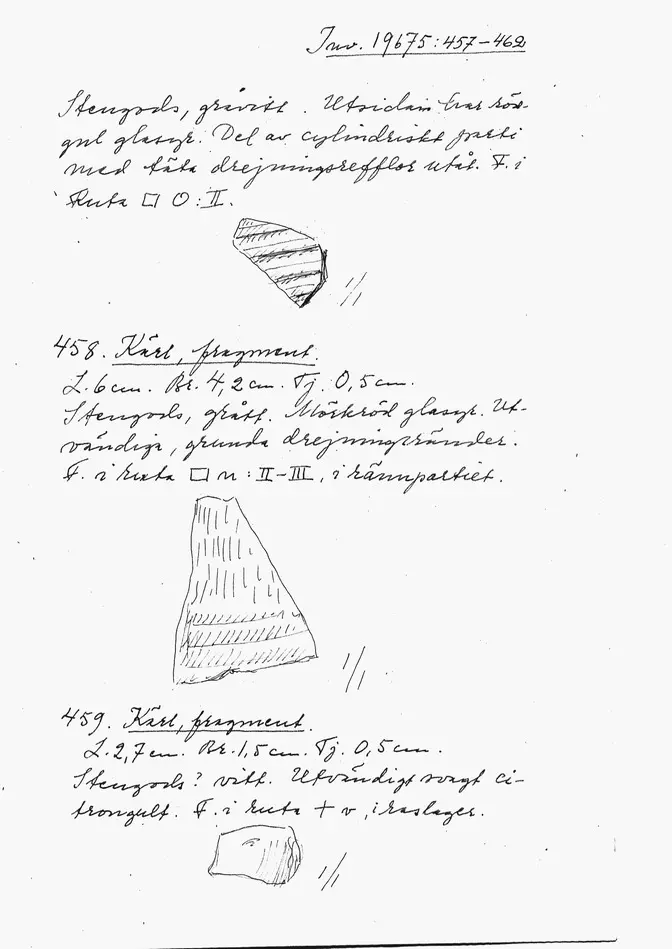 Inv. 19675:457–462
Stengods, gråvitt. Utsidan har röd-
gul glasyr. Del av cylindriskt parti
med täta drejningsrefflor utåt. F. i
Ruta □ O:II.
1/1
458. Kärl, fragment.
L. 6 cm. Br. 4,2 cm. Tj. 0,5 cm.
Stengods, grått. Mörkröd glasyr. Ut-
vändiga, grunda drejningsränder.
F. i ruta □ n:II–III, i rännpartiet.
1/1
459. Kärl, fragment.
L. 2,7 cm. Br. 1,5 cm. Tj. 0,5 cm.
Stengods? vitt. Utvändigt svagt ci-
trongult. F. i ruta + v, i raslager.
1/1